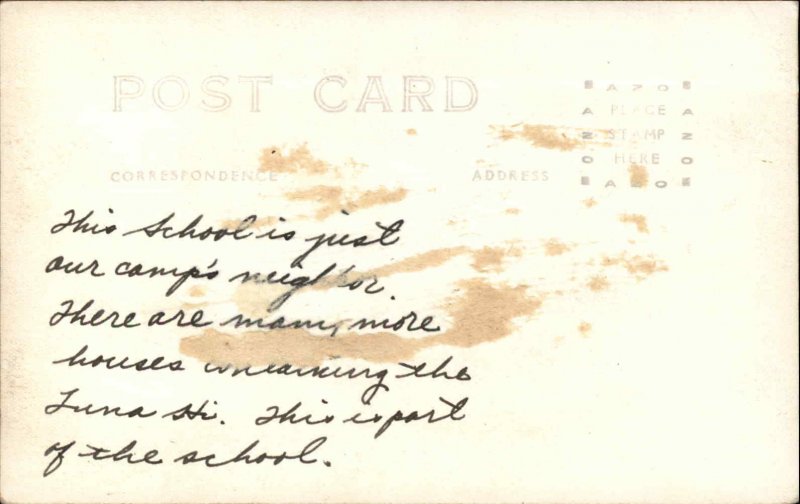 POST CARD
AZO
PLACE
STAMP
HERE
AZO
CORRESPONDENCE
ADDRESS
This School is just
our camp's neighbor.
There are many more
houses the
Hi. This is part
of the school.